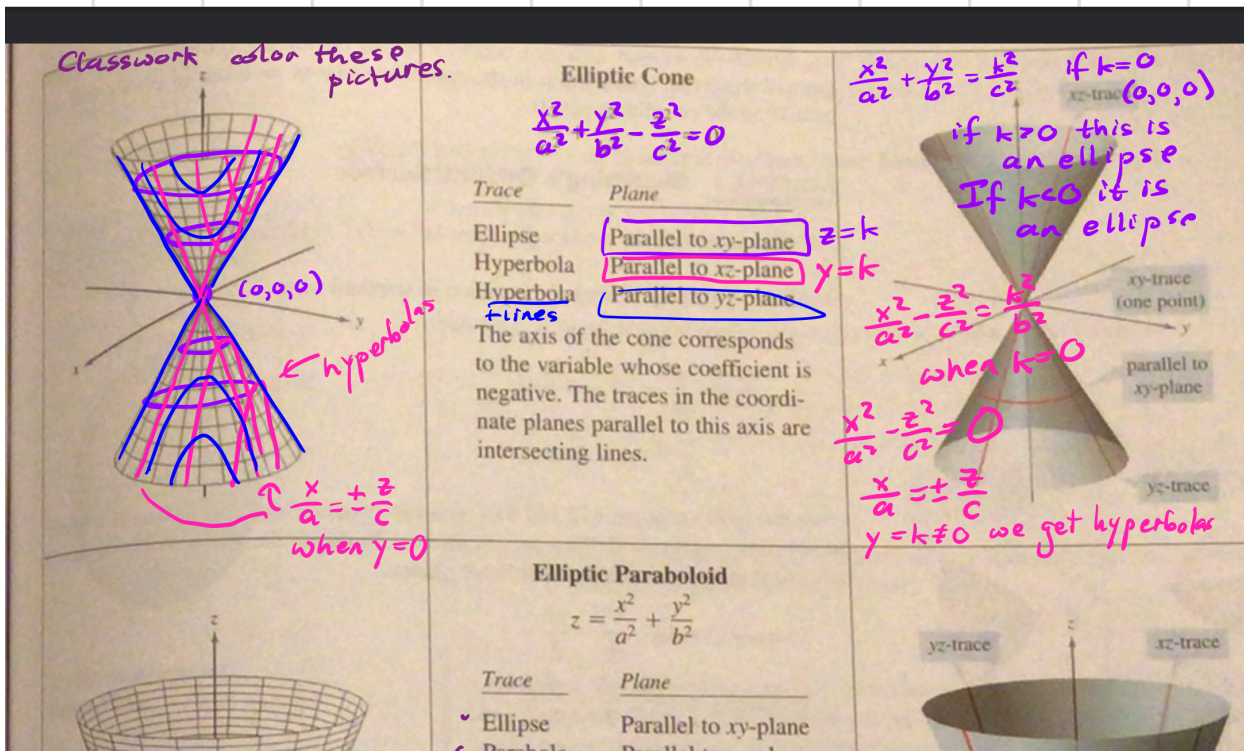 Classwork color these
pictures.
z
(0,0,0)
y
x
hyperbolas
x/a = ± z/c
when y=0
Elliptic Cone
x²/a² + y²/b² - z²/c² = 0
Trace Plane
Ellipse Parallel to xy-plane z=k
Hyperbola Parallel to xz-plane y=k
Hyperbola Parallel to yz-plane
+lines
The axis of the cone corresponds
to the variable whose coefficient is
negative. The traces in the coordi-
nate planes parallel to this axis are
intersecting lines.
x²/a² + y²/b² = k²/c² if k=0
xz-trace (0,0,0)
if k>0 this is
an ellipse
If k<0 it is
an ellipse
xy-trace
(one point)
y
x
x²/a² - z²/c² = k²/b²
when k=0
parallel to
xy-plane
x²/a² - z²/c² = 0
yz-trace
x/a = ± z/c
y=k≠0 we get hyperbolas
z
Elliptic Paraboloid
z = x²/a² + y²/b²
Trace Plane
Ellipse Parallel to xy-plane
Parabola Parallel to
yz-trace
z
xz-trace